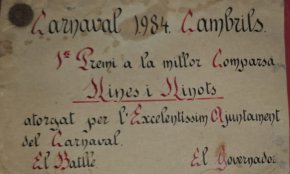 Carnaval 1984. Cambrils.
1er Premi a la millor Comparsa
Nines i Ninots
atorgat per l'Excelentissim Ajuntament
del Carnaval.
El Batlle El Governador